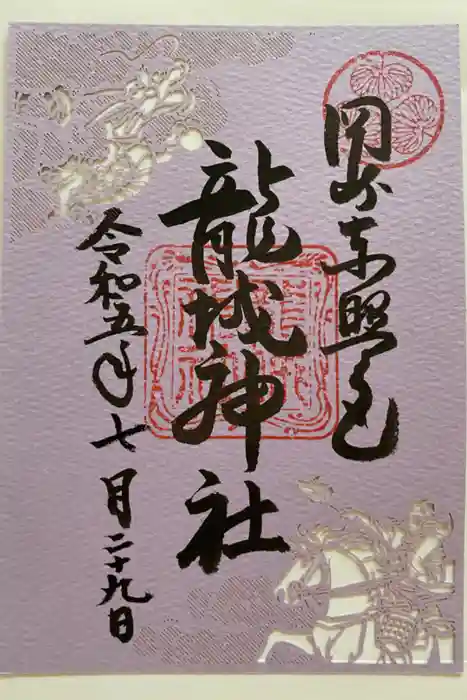 岡崎東照宮
龍城神社
令和五年七月二十九日